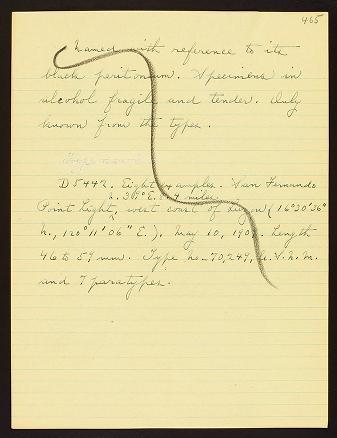 465
Named with reference to its
black peritoneum. Specimens in
alcohol fragile and tender. Only
known from the types.
D 5442. Eight examples. San Fernando
Point Light, west coast of Luzon (16°30'36"
N., 120°11'06" E.). May 10, 1909. Length
46 to 59 mm. Type no. 70,249, U.S.N.M.
and 7 paratypes.